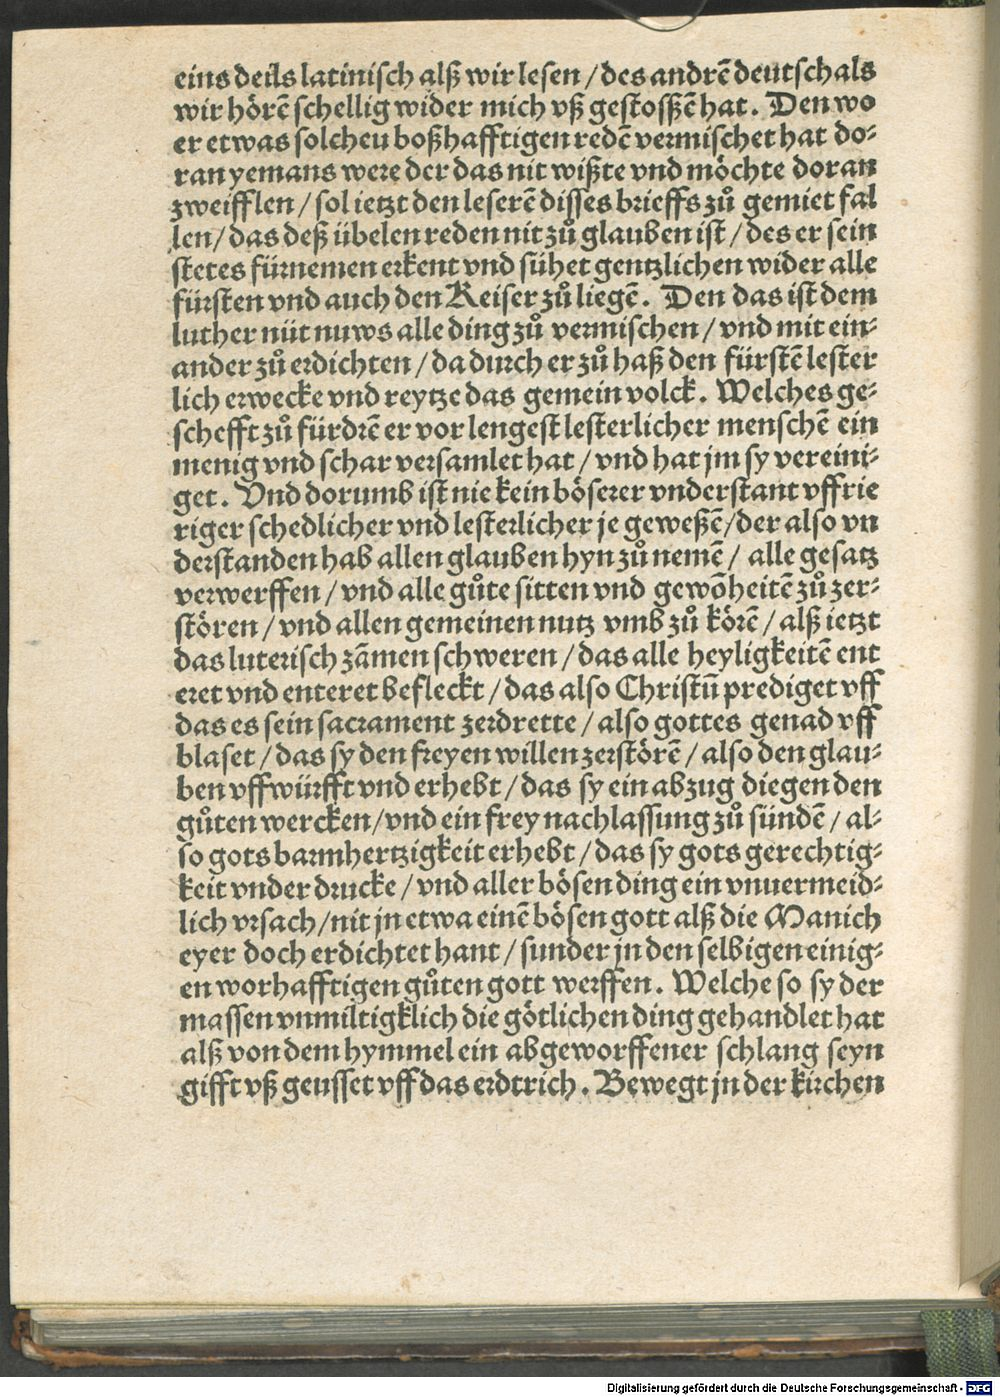 eins deils latinisch alß wir lesen / des andrē deutsch als
wir hörē schellig wider mich vß gestossßē hat. Den wo
er etwas solcheu boßhafftigen redē vermischet hat do-
ran yemans were der das nit wißte vnd möchte doran
zweifflen / sol ietzt den leserē disses brieffs zů gemiet fal
len / das deß übelen reden nit zů glauben ist / des er sein
stetes fürnemen erkent vnd sühet gentzlichen wider alle
fürsten vnd auch den Keiser zů liegē. Den das ist dem
luther nüt nuws alle ding zů vermischen / vnd mit ein-
ander zů erdichten / da durch er zů haß den fürstē lester
lich erwecke vnd reytze das gemein volck. Welches ge-
schefft zů fürdrē er vor lengest lesterlicher menschē ein
menig vnd schar versamlet hat / vnd hat jm sy vereini-
get. Vnd dorumb ist nie kein böserer vnderstant vffrie
riger schedlicher vnd lesterlicher je geweßē/der also vn
derstanden hab allen glauben hyn zů nemē / alle gesatz
verwerffen / vnd alle gůte sitten vnd gewōheitē zů zer-
stören / vnd allen gemeinen nutz vmb zů körē / alß ietzt
das luterisch zāmen schweren / das alle heyligkeitē ent
eret vnd enteret befleckt / das also Christū prediget vff
das es sein sacrament zerdrette / also gottes genad vff
blaset / das sy den freyen willen zerstörē / also den glau-
ben vffwürfft vnd erhebt / das sy ein abzug diegen den
gůten wercken/vnd ein frey nachlassung zů sündē / al-
so gots barmhertzigkeit erhebt / das sy gots gerechtig-
keit vnder drucke / vnd aller bösen ding ein vnuermeid-
lich vrsach/nit jn etwa einē bösen gott alß die Manich
eyer doch erdichtet hant / sunder jn den selbigen einig-
en worhafftigen gůten gott werffen. Welche so sy der
massen vnmiltigklich die götlichen ding gehandlet hat
alß von dem hymmel ein abgeworffener schlang seyn
gifft vß geusset vff das erdtrich. Bewegt jn der kirchen
Digitalisierung gefördert durch die Deutsche Forschungsgemeinschaft - DFG